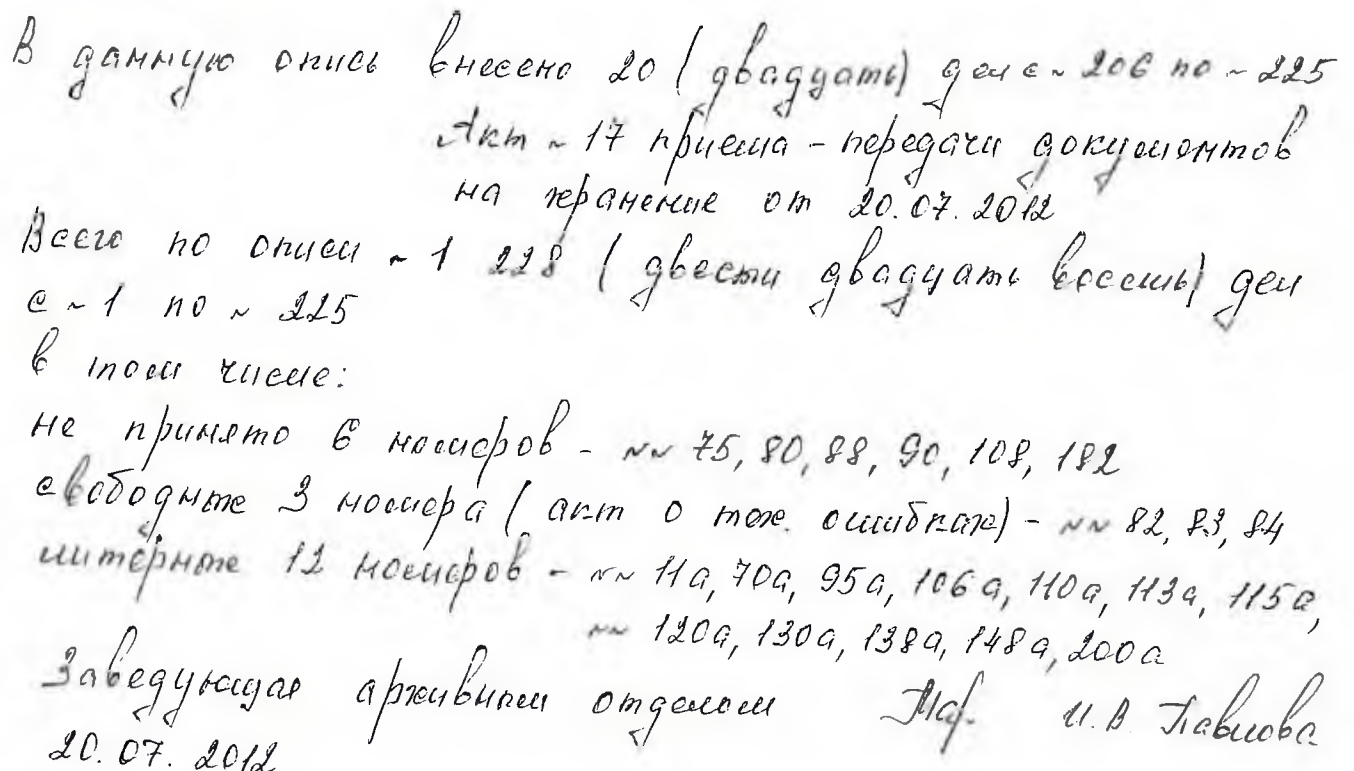 В данную опись внесено 20 (двадцать) дел с ~ 206 по ~ 225
Акт ~ 17 приема - передачи документов
на хранение от 20.07.2012
Всего по описи ~ 1 228 (двести двадцать восемь) дел
с ~ 1 по ~ 225
в том числе:
не принято 6 номеров - ~~ 75, 80, 88, 90, 108, 182
свободные 3 номера (акт о тех. ошибках) - ~~ 82, 83, 84
литерные 12 номеров - ~~ 11а, 70а, 95а, 106а, 110а, 113а, 115а,
~~ 120а, 130а, 138а, 148а, 200а
Заведующая архивным отделом И.В. Павлова
20.07.2012